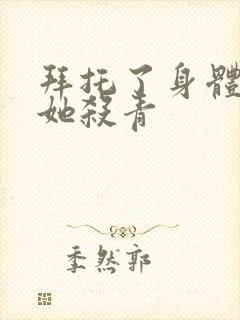 拜托了身體
她殺青
季然郭